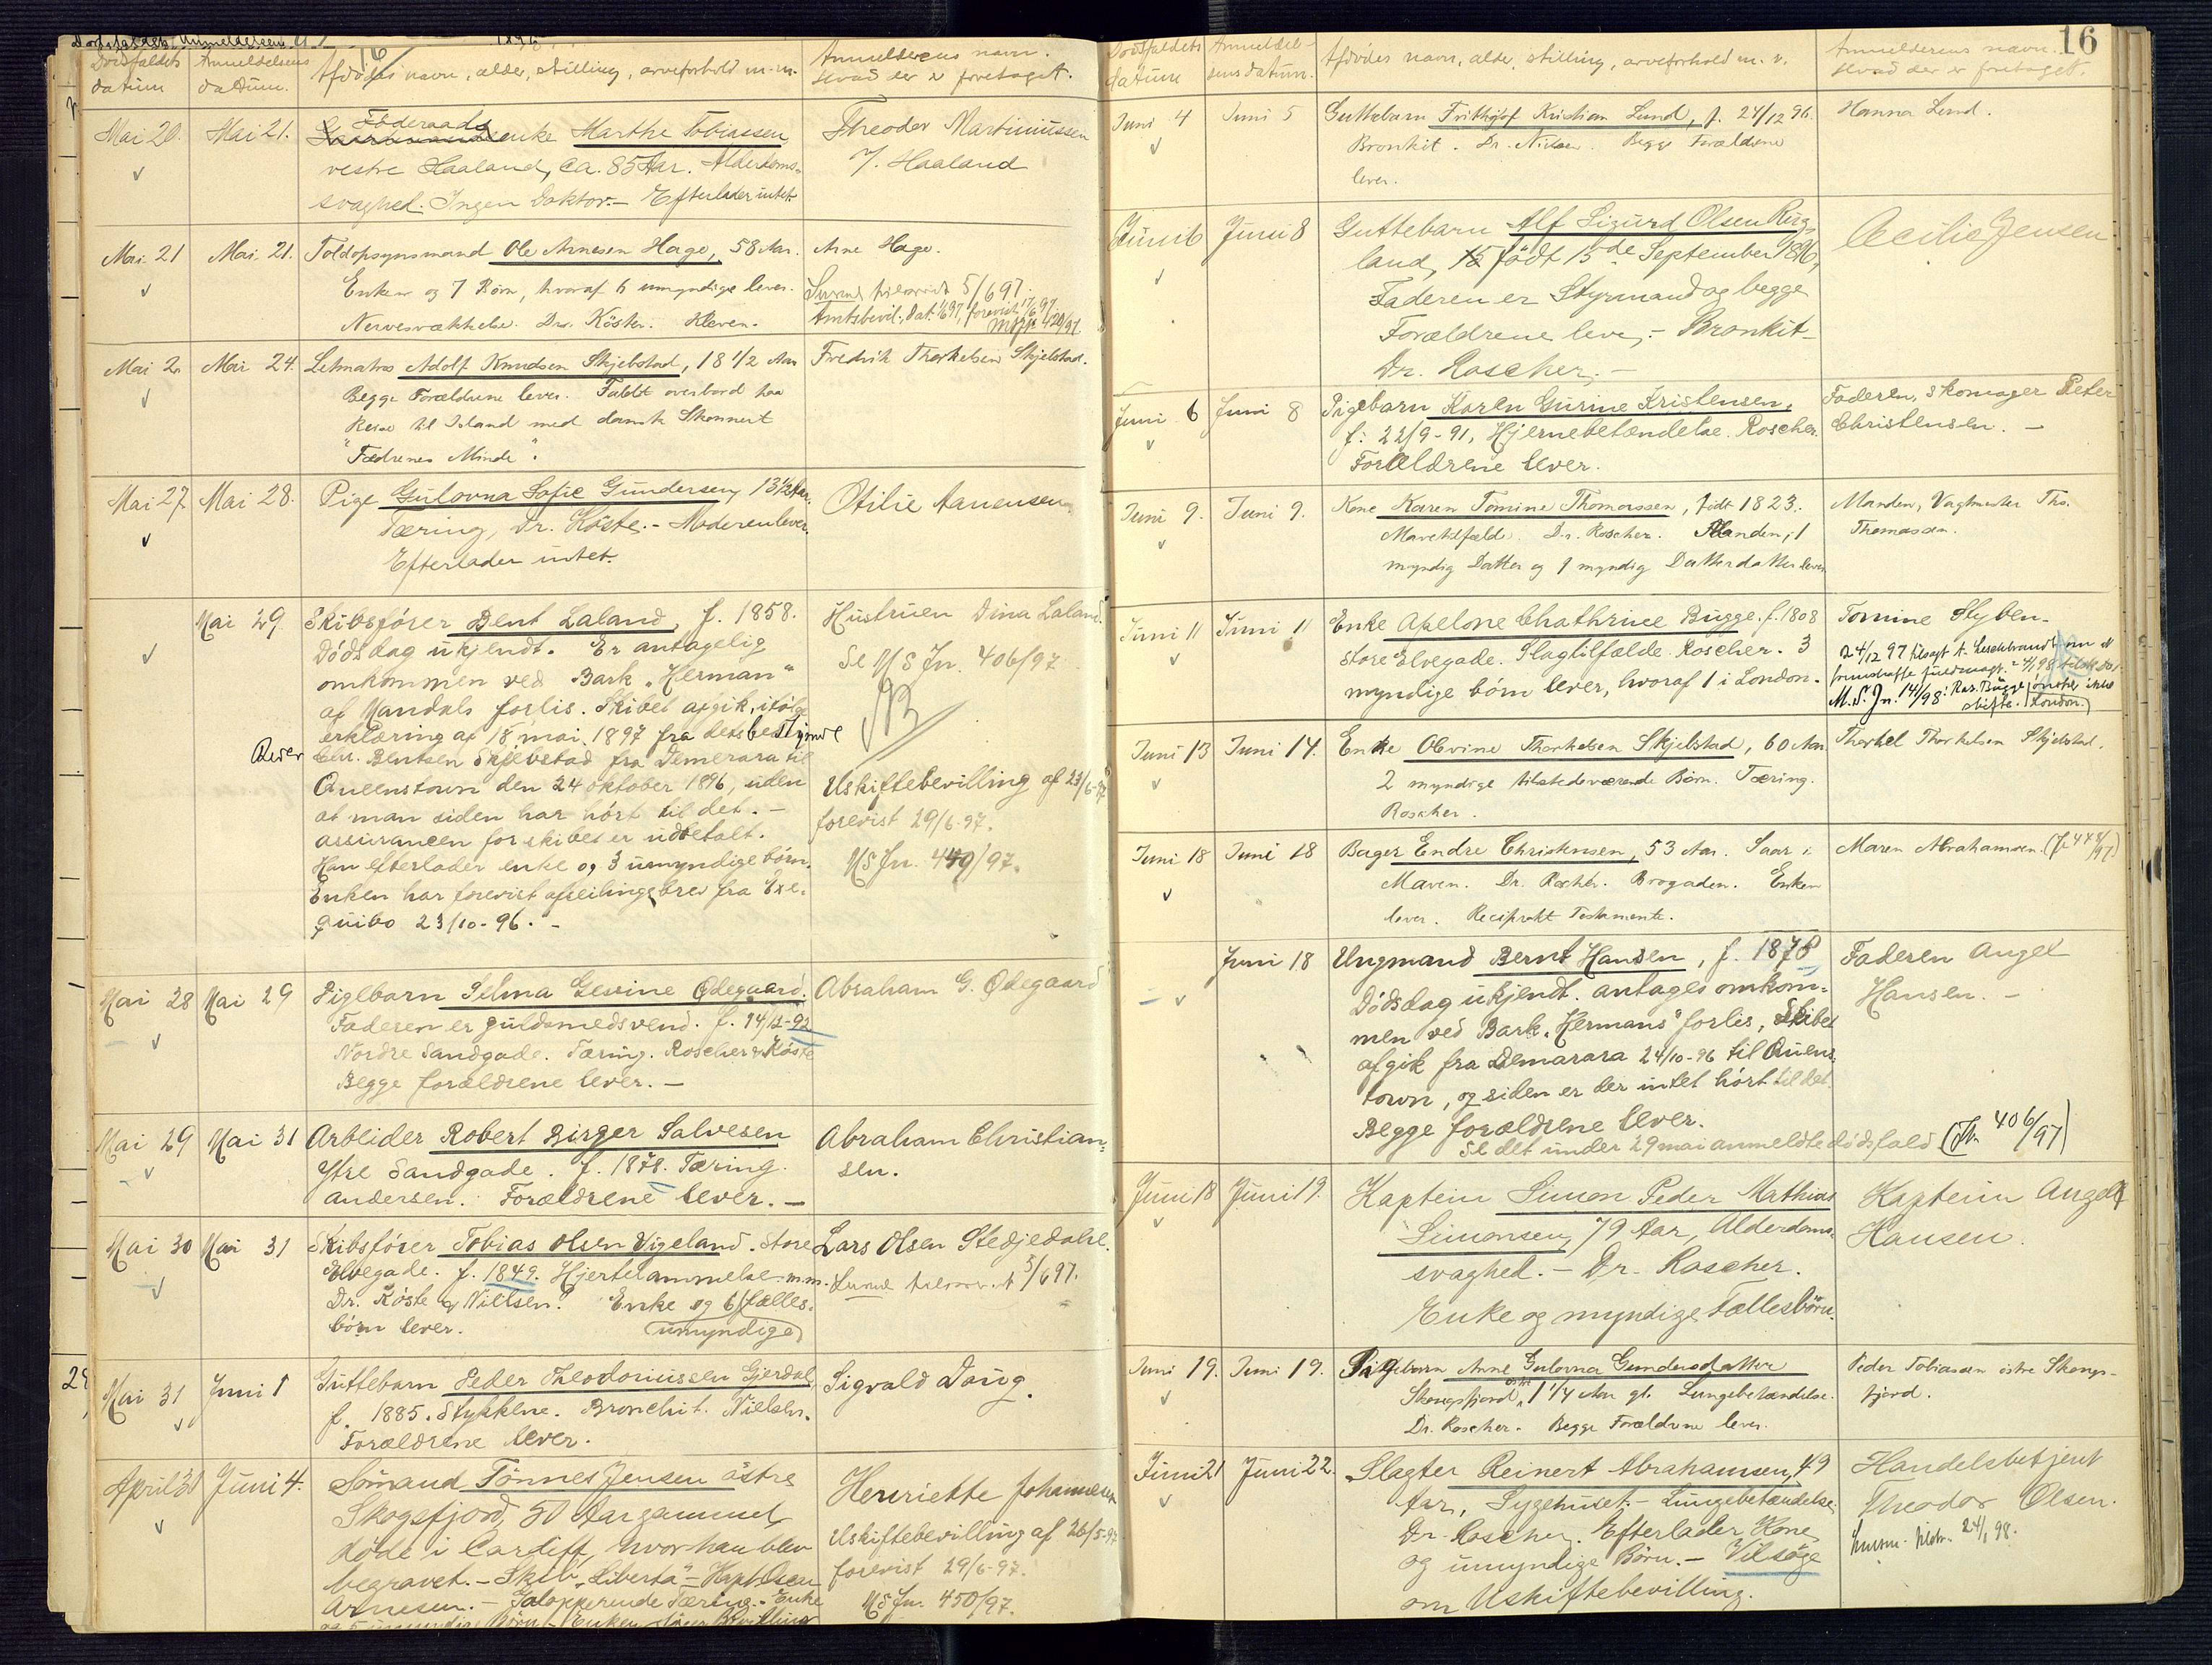 Dødsfaldets datum
Anmeldelsens datum.
Afdødes navn, alder, stilling, arveforhold m.m.
Anmelderens navn.
Hvad der er foretaget.
Mai 20. Mai 21.
Föderaads
enke Marthe Tobiassen
vestre Haaland, ca. 85 Aar. Alderdoms-
svaghed. Ingen Doktor. — Efterlader intet.
Theodor Martiniussen
V. Haaland
Mai 21 Mai 21.
Toldopsynsmand Ole Arnesen Hage, 58 Aar.
Enken og 7 Børn, hvoraf 6 umyndige lever.
Nervesvækkelse. Drs. Köster. Kleven.
Arne Hage.
5/6 97.
Amtsbevil., dat. 1/6 97, forevist 17/6 97.
420/97.
Mai 2. Mai 24.
Letmatros Adolf Knudsen Skjebstad, 18 1/2 Aar
Begge Forældrene lever. Faldt overbord paa
Reise til Island med dansk Skonnert
"Fædrenes Minde".
Fredrik Thorkelsen Skjelstad.
Mai 27. Mai 28.
Pige Gulovna Sofie Gundersen, 13 1/2 Aar.
Tæring, Dr. Köste. — Moderen lever.
Efterlader intet.
Otilie Aanensen
Mai 29.
Skibsfører Bent Laland, f. 1858.
Dødsdag ukjendt. Er antagelig
omkommen ved Bark "Herman"
af Mandals forlis. Skibet afgik, ifølge
erklæring af 18 mai 1897 fra dets bestyrende
Reder Chr. Bentsen Skjebstad fra Demerara til
Queenstown den 24 oktober 1896, uden
at man siden har hørt til det. —
assurancen for skibet er udbetalt.
Han efterlader enke og 3 umyndige børn.
Enken har forevist afseilingsbrev fra Exe-
quibo 23/10-96. —
Hustruen Dina Laland.
Se MS Jn. 406/97.
Uskiftebevilling af 23/6-97
forevist 29/6-97.
MS Jn. 449/97.
Mai 28 Mai 29
Pigebarn Selma Gesine Ødegaard.
Faderen er guldsmedsvend. f. 14/12-92
Nordre Sandgade. Tæring. Roscher & Köste
Begge forældrene lever. —
Abraham G. Ødegaard
Mai 29 Mai 31
Arbeider Robert Birger Salvesen
Ytre Sandgade. f. 1878. Tæring.
Andersen. Forældrene lever. —
Abraham Christian-
sen.
Mai 30 Mai 31
Skibsfører Tobias Olsen Vigeland. Store
Elvegade. f. 1849. Hjertelammelse m.m.
Dr. Köste & Nielsen. Enke og 6 fælles-
børn lever. (umyndige)
Lars Olsen Stedjedale.
5/6 97.
Mai 31 Juni 1
Guttebarn Peder Theodoriussen Gjerdal,
f. 1885. Stykkene. Bronchit. Nielsen.
Forældrene lever.
Sigvald Daug.
April 30 Juni 4.
Sømand Tönnes Jensen östre
Skogsfjord, 50 Aar gammel,
døde i Cardiff, hvor han blev
begravet. — Skib "Liberta" — Kapt. Olsen
Arnesen. — Galopperende Tæring. — Enke
og 5 umyndige Børn. — Enken søger Bevilling
Henriette Johannesen
Uskiftebevilling af 26/5-97
forevist 29/6-97.
MS Jn. 450/97.
16
Dødsfaldets datum
Anmeldelsens datum.
Afdødes navn, alder, stilling, arveforhold m.v.
Anmelderens navn.
Hvad der er foretaget.
Juni 4 Juni 5
Guttebarn Frithjof Kristian Lund, f. 24/12 96.
Bronkit. Dr. Nielsen. Begge Forældrene
lever.
Hanna Lund.
Juni 6 Juni 8
Guttebarn Alf Sigurd Olsen Ring-
land, født 15de September 1896,
Faderen er Styrmand og begge
Forældrene leve. — Bronkit —
Dr. Roscher. —
Cecilie Jensen
Juni 6 Juni 8
Pigebarn Karen Gurine Kristensen,
f. 22/9-91, Hjernebetændelse. Roscher.
Forældrene lever.
Faderen, skomager Peter
Christensen. —
Juni 9. Juni 9.
Kone Karen Tomine Thomassen, født 1823.
Mavetilfælde. Dr. Roscher. Manden, 1
myndig Datter og 1 myndig Datterdatter lever.
Manden, Vagtmester Ths.
Thomassen.
Juni 11 Juni 11
Enke Abelone Chathrine Bugge. f. 1808
Store Elvegade. Slagtilfælde. Roscher. 3
myndige børn lever, hvoraf 1 i London.
Tomine Styben.
24/12 97 tilsagt
fremskaffe fuldmagt.
M.S. Jn. 14/98: Ras. Bugge ønsker ikke
skifte. (London.)
Juni 13 Juni 14.
Enke Olvine Thorkelsen Skjelstad, 60 Aar.
2 myndige tilstedeværende Børn. Tæring.
Roscher.
Thorkel Thorkelsen Skjelstad.
Juni 18 Juni 18
Bager Endre Christensen, 53 Aar. Saar i
Maven. Dr. Roscher. Brogaden. Enken
lever. Reciprokt Testamente.
Maren Abrahamsen. (J. 448/97)
Juni 18
Ungmand Bernt Hansen, f. 1878
Dødsdag ukjendt. antages omkom-
men ved Bark "Hermans" forlis, Skibet
afgik fra Demarara 24/10-96 til Queens-
town, og siden er der intet hørt til det.
Begge forældrene lever.
Se det under 29 mai anmeldte dødsfald (Jn. 406/97)
Faderen Angel
Hansen. —
Juni 18 Juni 19.
Kaptein Simon Peder Mathias
Simonsen, 79 Aar, Alderdoms-
svaghed. — Dr. Roscher.
Enke og myndige Fællesbørn.
Kaptein Angell
Hansen.
Juni 19. Juni 19.
Pigebarn Anne Gulovna Gundersdatter
østre
Skougsfjord, 1 1/4 Aar gl. Lungebetændelse.
Dr. Roscher. Begge Forældrene lever.
Peder Tobiassen östre Skougs-
fjord.
Juni 21 Juni 22.
Slagter Reinert Abrahamsen, 49
Aar, Sygehuset. — Lungebetændelse.
Dr. Roscher. Efterlader Kone
og umyndige Børn. — Vil søge
om Uskiftebevilling.
Handelsbetjent
Theodor Olsen.
24/1 98.